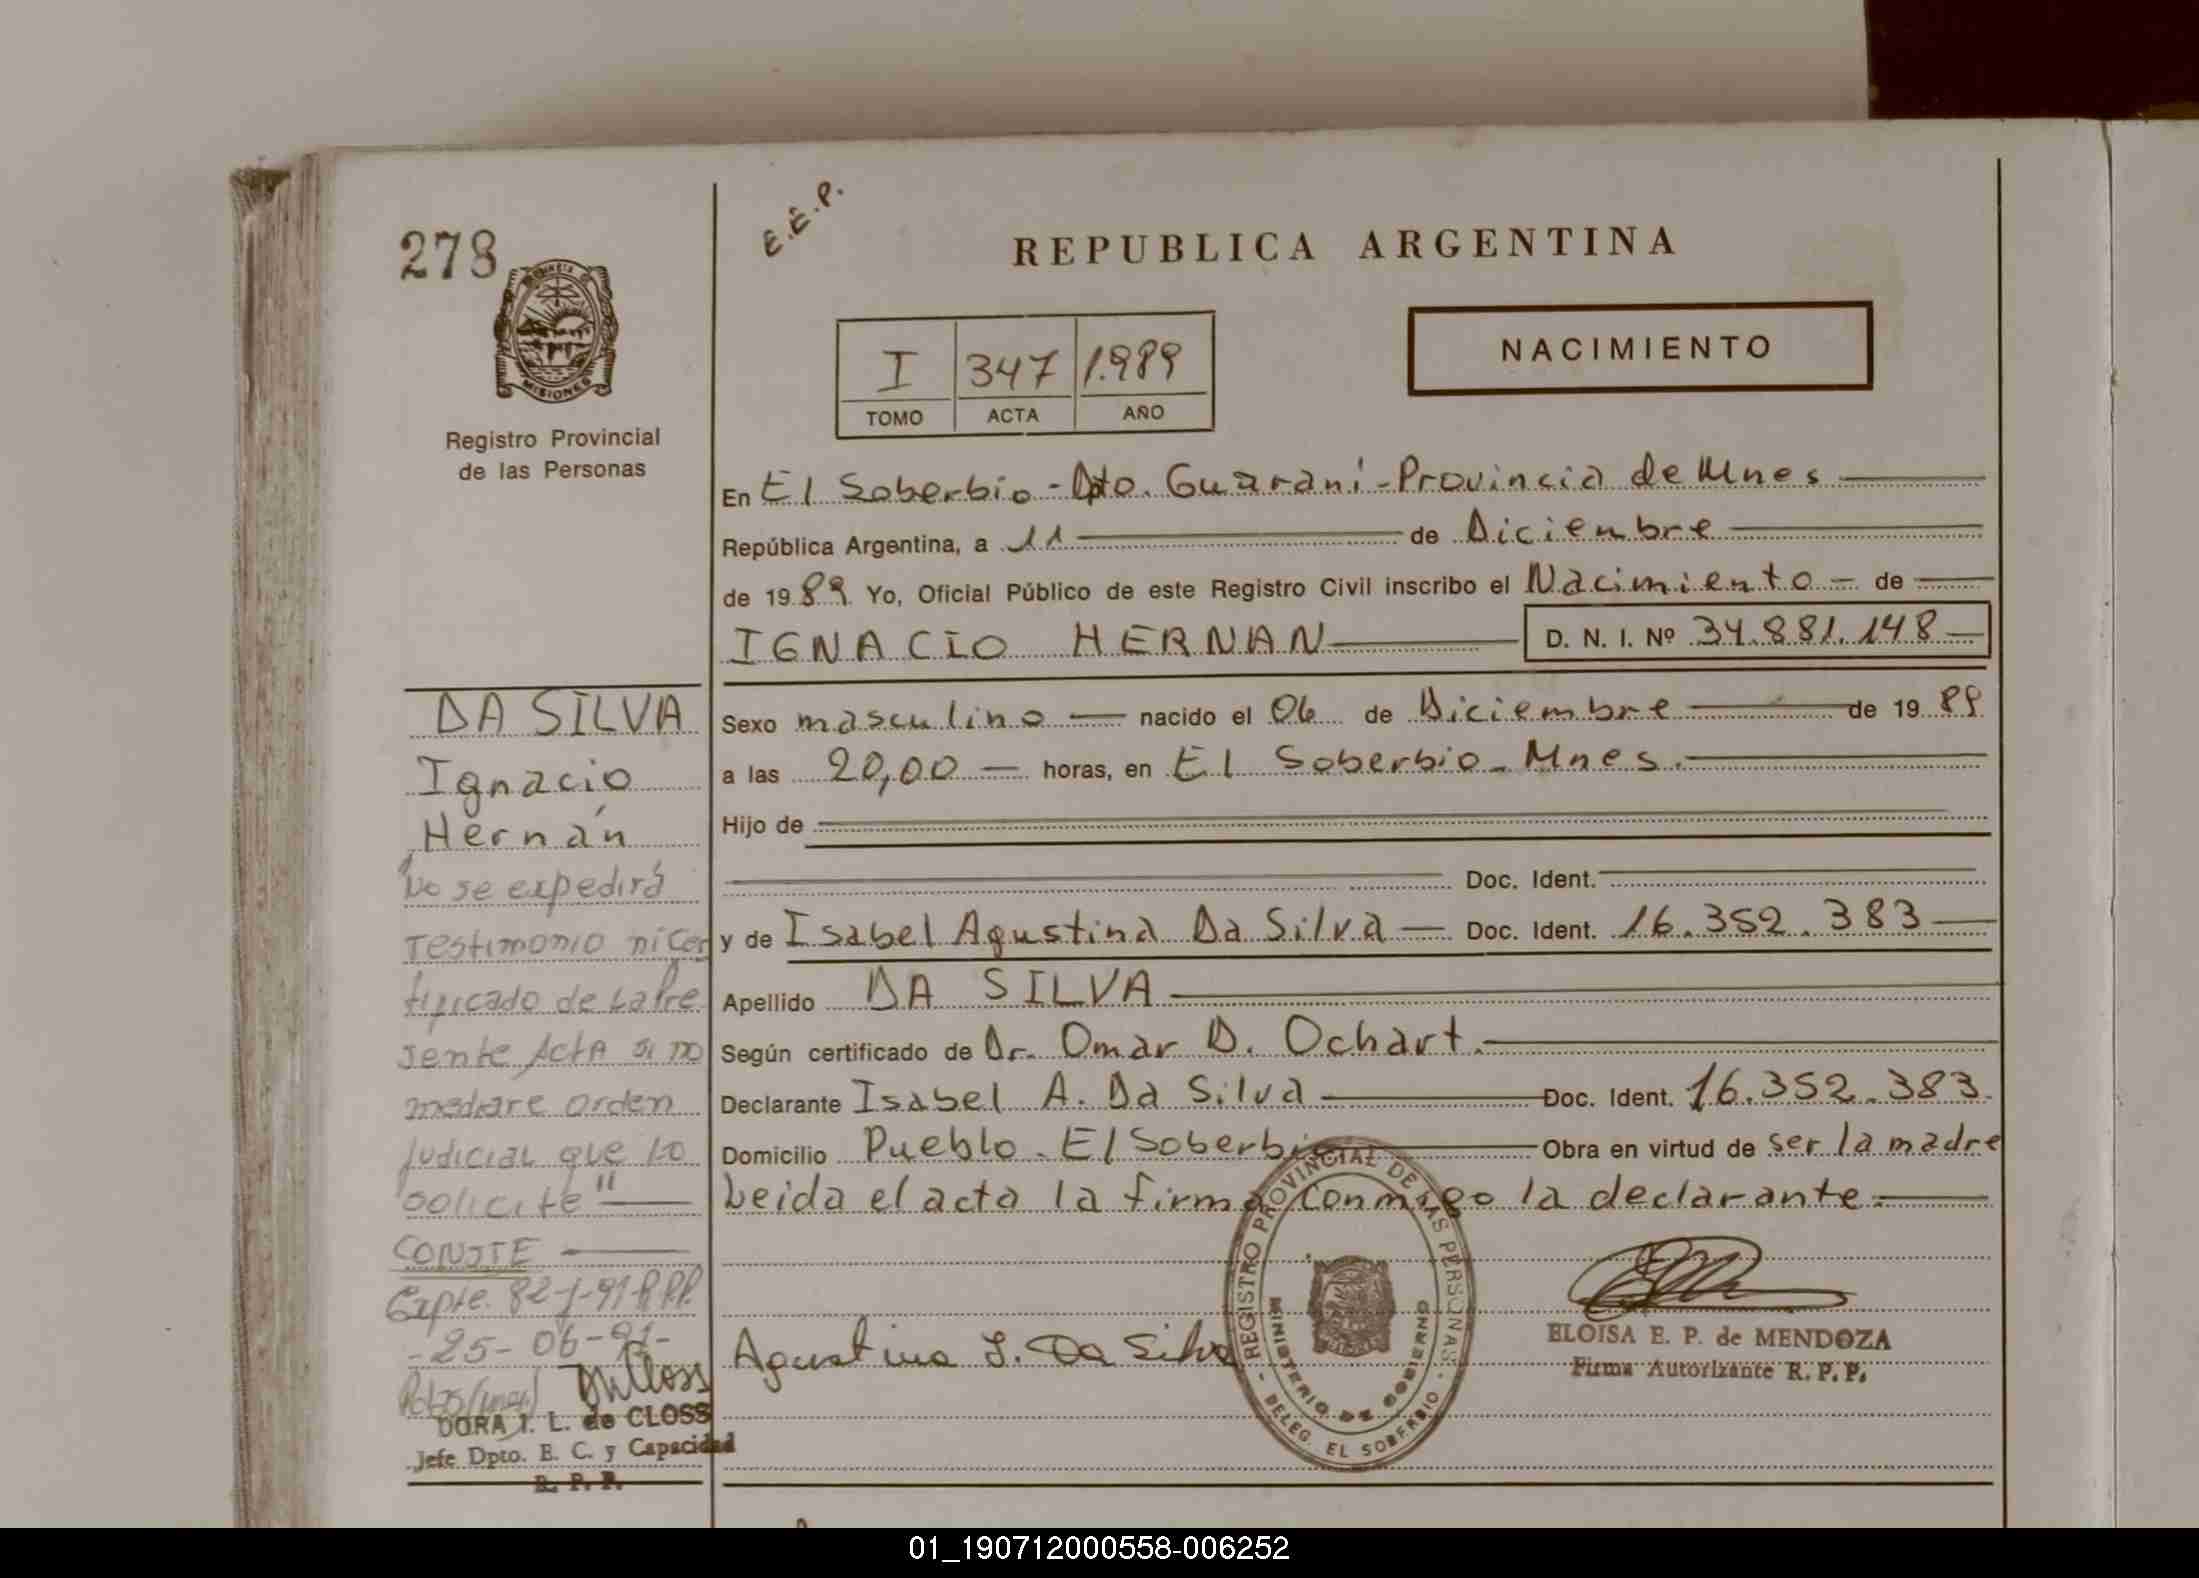 278
E.E.P.
REPUBLICA ARGENTINA
MISIONES
Registro Provincial
de las Personas
I 347 1.989
TOMO ACTA AÑO
NACIMIENTO
En El Soberbio - Dpto. Guaraní - Provincia de Mnes
República Argentina, a 11 de Diciembre
de 1989 Yo, Oficial Público de este Registro Civil inscribo el Nacimiento - de
IGNACIO HERNAN D. N. I. Nº 34.881.148
Sexo masculino nacido el 06 de Diciembre de 1989
a las 20,00 horas, en El Soberbio - Mnes.
Hijo de
Doc. Ident.
y de Isabel Agustina Da Silva Doc. Ident. 16.352.383
Apellido DA SILVA
Según certificado de Dr. Omar D. Ochart.
Declarante Isabel A. Da Silva Doc. Ident. 16.352.383
Domicilio Pueblo - El Soberbio Obra en virtud de ser la madre
Leida el acta la firma conmigo la declarante.
Agustina I. Da Silva
REGISTRO PROVINCIAL DE LAS PERSONAS
MINISTERIO DE GOBIERNO
DELEG. EL SOBERBIO
ELOISA E. P. de MENDOZA
Firma Autorizante R. P. P.
DA SILVA
Ignacio
Hernán
No se expedirá
testimonio ni cer
tificado de la Pre
sente Acta si no
mediare orden
judicial que lo
solicite"
CONSTE
Expte. 82-J-91-R.P.P.
- 25-06-91-
DORA I. L. de CLOSS
Jefe Dpto. E. C. y Capacidad
R. P. P.
01_190712000558-006252